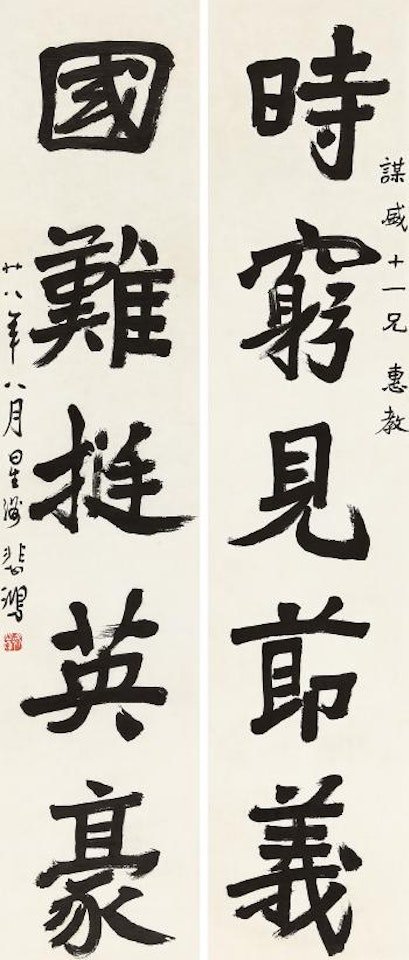 謀威十一兄 惠教
時窮見節義
國難挺英豪
廿八年八月星洲 悲鴻